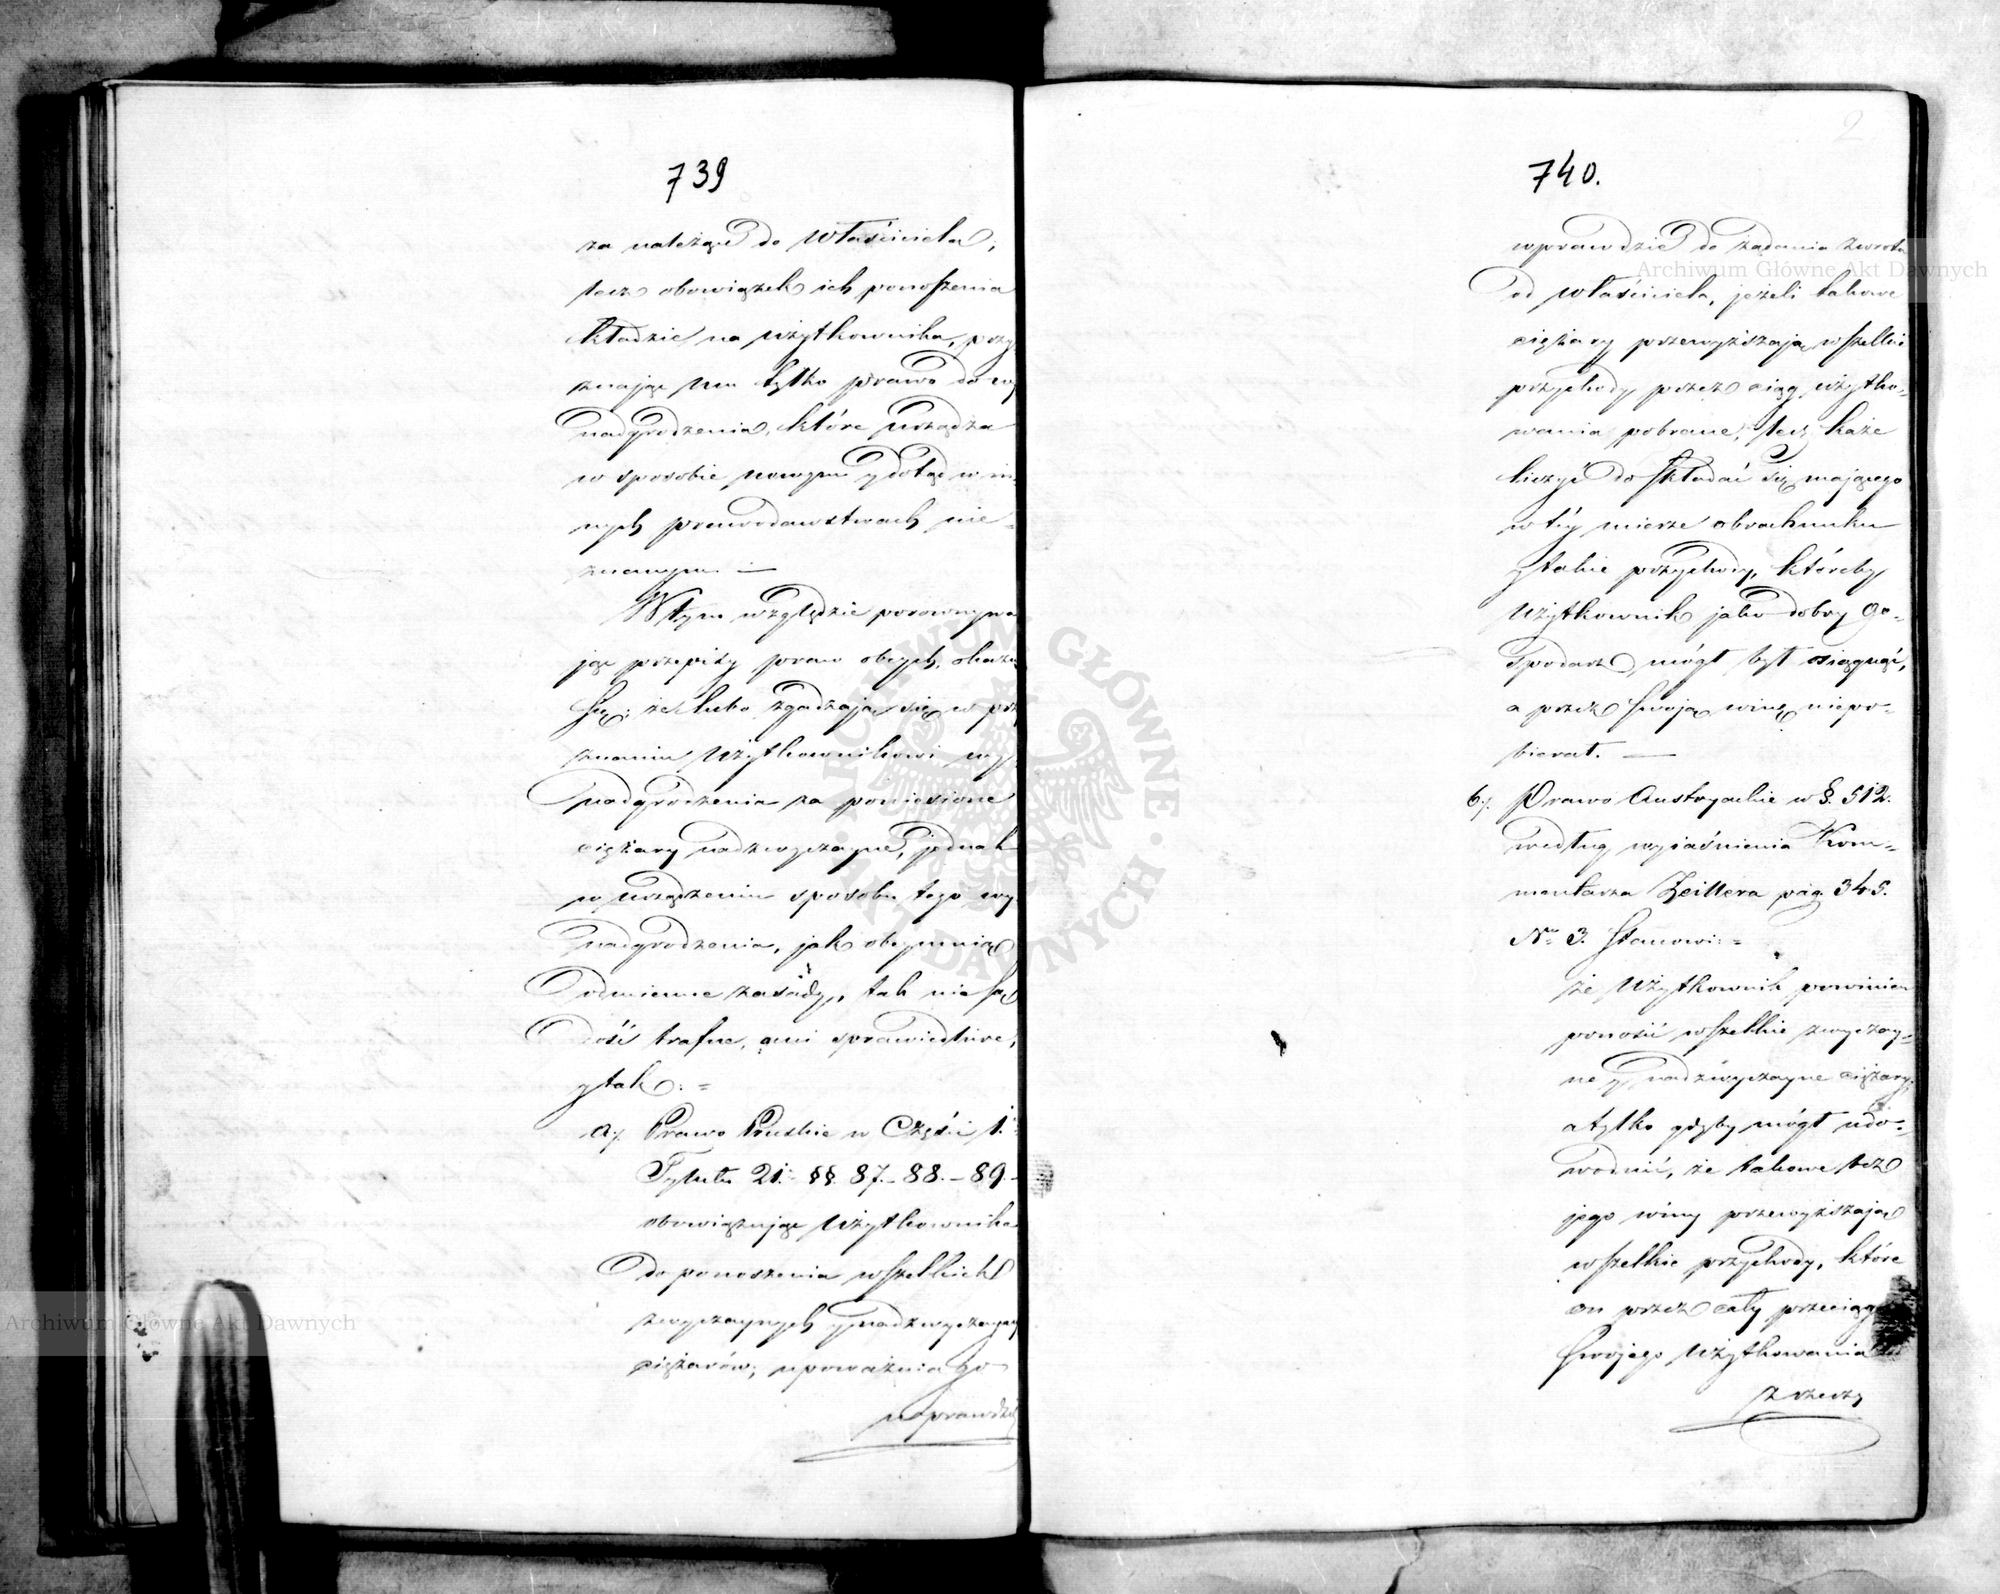 739
za należące do Właściciela,
lecz obowiązek ich ponoszenia
kładzie na Użytkownika, przy
znając mu tylko prawo do wy
nadgrodzenia, które urządza
w sposobie nowym y dotąd w in
nych prawodawstwach nie-
znanym. —
W tym względzie porownywa
jąc przepisy praw obcych, okazu
się; że lubo zgadzają się w przy
znaniu Użytkownikowi wy
nadgrodzenia za poniesione
ciężary nadzwyczayne, jednak
w urządzeniu sposobu tego wy
nadgrodzenia, jak obeymują
odmienne zasady, tak nie są
dość trafne, ani sprawiedliwe,
y tak: =
a/. Prawo Pruskie w Części 1.
Tytule 21. §§. 87.- 88. - 89. -
obowiązując Użytkownika
do ponoszenia wszelkich
zwyczaynych y nadzwyczayny
ciężarów, upoważnia go
wprawdzie
740.
2
wprawdzie do żądania zwrotu
od Właściciela, jeżeli takowe
ciężary przewyższają wszelkie
przychody przez ciąg użytko-
wania pobrane, lecz każe
liczyć do składać się mającego
w tey mierze obrachunku
y takie przychody, któreby
Użytkownik jako dobry Go-
spodarz mógł był osiągnąć,
a przez swoją winę niepo-
bierał. —
b/. Prawo Austryackie w §. 512.
według wyiaśnienia Kom-
mentarza Zeillera pag. 345.
No 3. stanowi: =
że Użytkownik powinien
ponosić wszelkie zwyczay-
ne y nadzwyczayne ciężary,
a tylko gdyby mógł udo-
wodnić, że takowe bez
jego winy przewyższają
wszelkie przychody, które
on przez cały przeciąg
swojego Użytkowania
z rzeczy
Archiwum Główne Akt Dawnych
Archiwum Główne Akt Dawnych
ARCHIWUM GŁÓWNE
AKT DAWNYCH